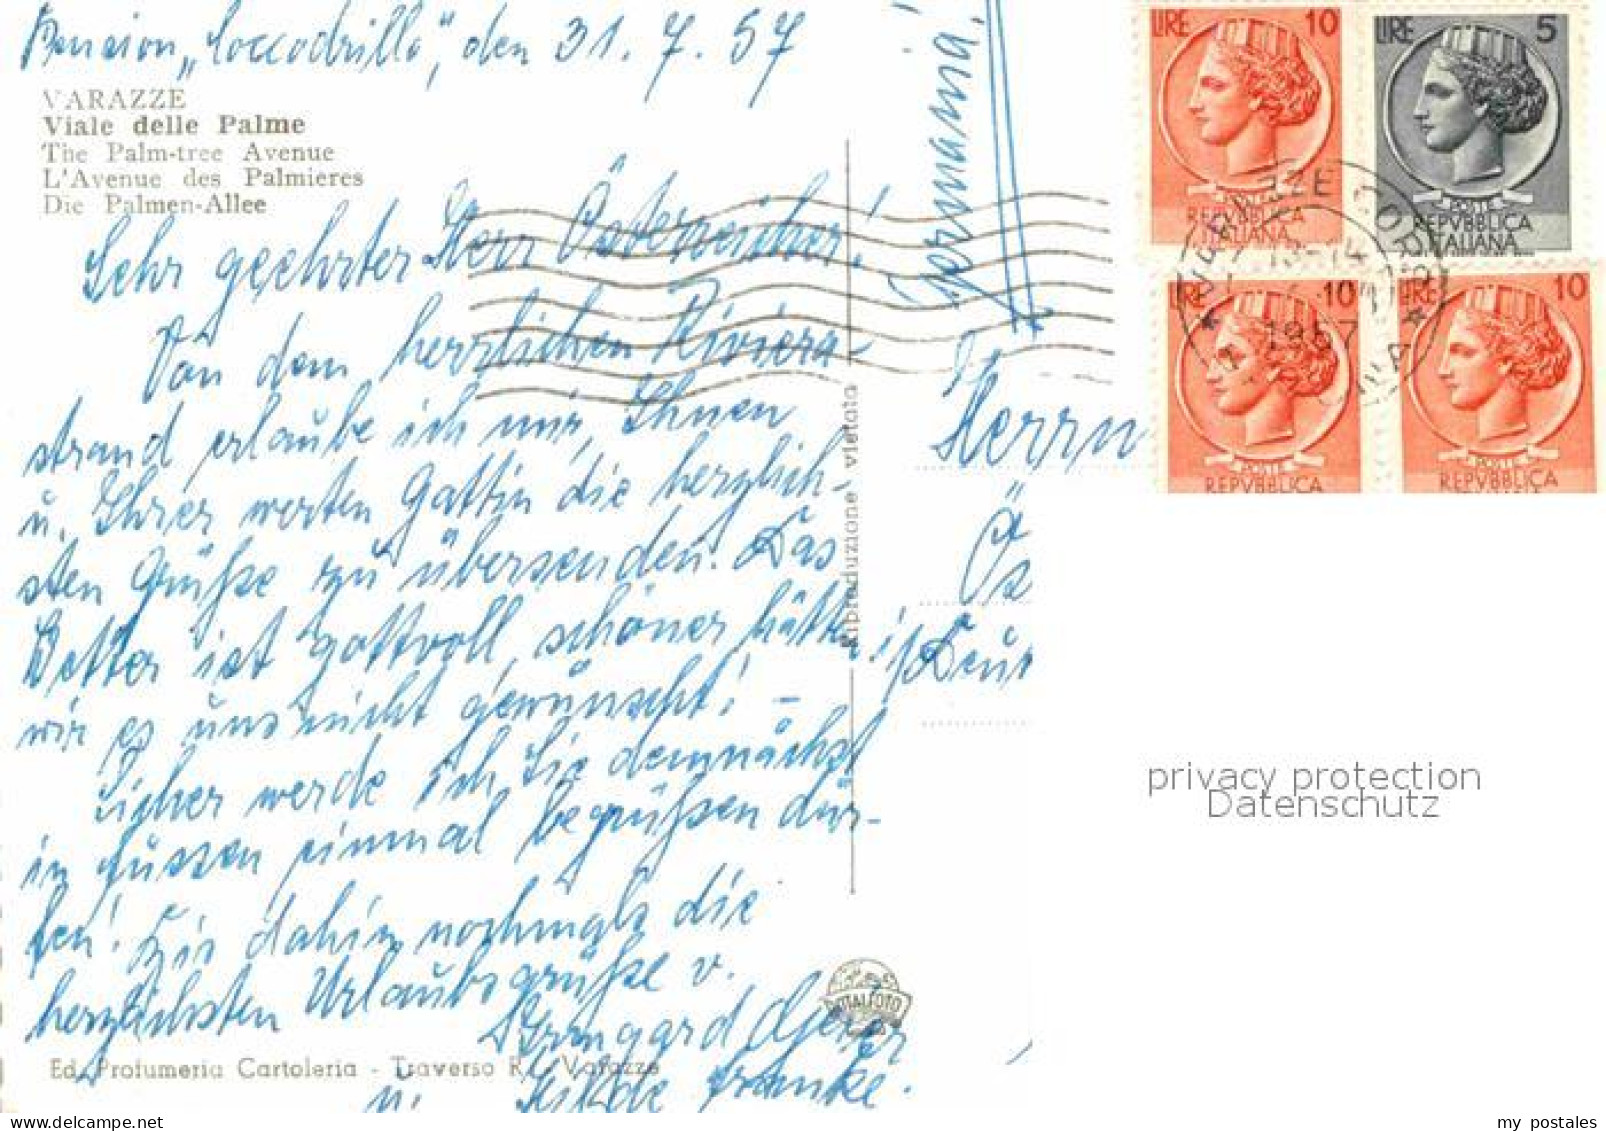 Pension „Coccodrillo", den 31. 7. 57
VARAZZE
Viale delle Palme
The Palm-tree Avenue
L'Avenue des Palmieres
Die Palmen-Allee
Sehr geehrter Herr Österreicher!
Von dem herrlichen Riviera-
strand erlaube ich mir, Ihnen
u. Ihrer werten Gattin die herzlich-
sten Grüße zu übersenden. Das
Wetter ist gottvoll, schöner hätten
wir es uns nicht gewünscht! -
Sicher werde ich Sie demnächst
in Füssen einmal begrüßen dür-
fen! Bis dahin nochmals die
herzlichsten Urlaubsgrüße v.
Irmgard
u. Hilde Franke.
Ed. Profumeria Cartoleria - Traverso R. - Varazze
Riproduzione vietata
ITALFOTO
Germania!
Herrn
Ös
Deut
LIRE 10
POSTE
REPVBBLICA
ITALIANA
LIRE 5
POSTE
REPVBBLICA
ITALIANA
LIRE 10
POSTE
REPVBBLICA
LIRE 10
POSTE
REPVBBLICA
13-14
1957
privacy protection
Datenschutz
my postales